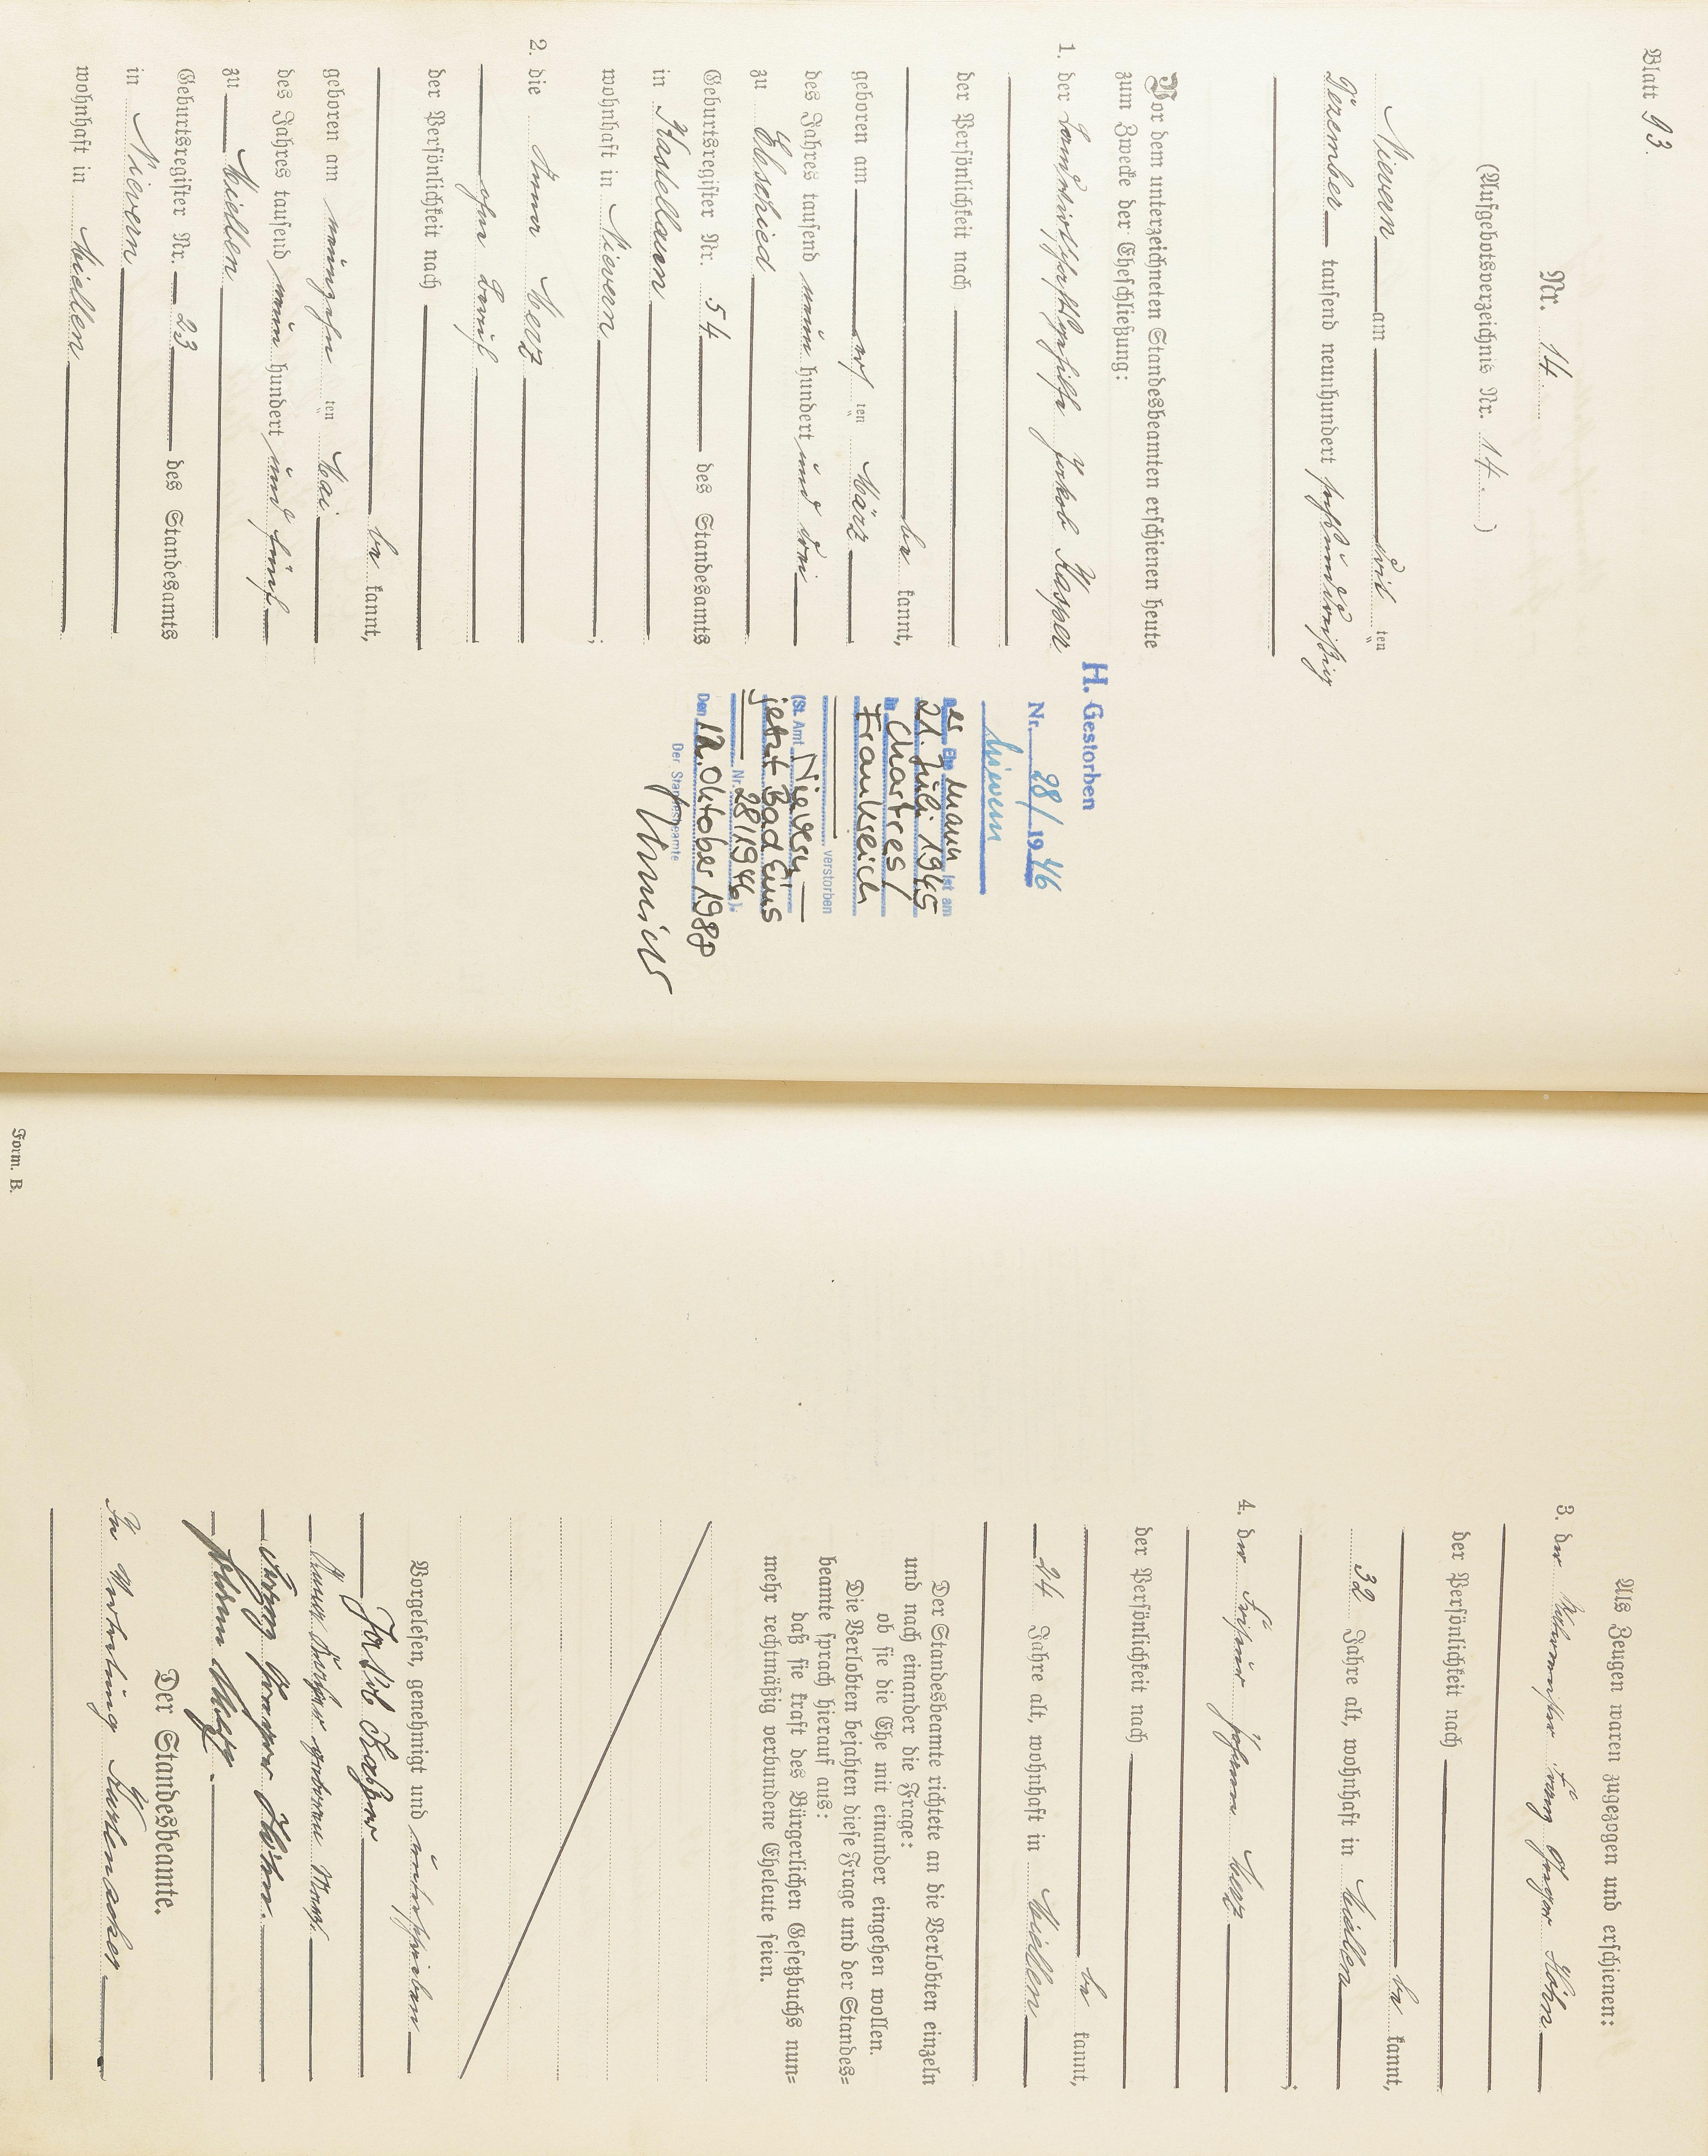 Blatt 93.
Nr. 14
(Aufgebotsverzeichnis Nr. 14.)
Nievern am drit ten
Dezember tausend neunhundert sechsunddreißig
Vor dem unterzeichneten Standesbeamten erschienen heute
zum Zwecke der Eheschließung:
1. der Jakob Kasper
der Persönlichkeit nach
be kannt,
geboren am ten März
des Jahres tausend neun hundert und drei
zu Ebschied
Geburtsregister Nr. 54 des Standesamts
in Kastellaun
wohnhaft in Nievern;
2. die Anna Merz
ohne Beruf
der Persönlichkeit nach
be kannt,
geboren am neunzehn ten Mai
des Jahres tausend neun hundert und fünf
zu Miellen
Geburtsregister Nr. 23 des Standesamts
in Nievern
wohnhaft in Miellen
H. Gestorben
Nr. 28/1946
Nievern
Der Ehe mann ist am
21. Juli 1945
in Chartres/
Frankreich
verstorben
(St. Amt Nievern
jetzt Bad Ems
Nr. 28/1946).
Den 12. Oktober 1988
Der Standesbeamte
Als Zeugen waren zugezogen und erschienen:
3. der Franz Höhn
der Persönlichkeit nach
be kannt,
32 Jahre alt, wohnhaft in Miellen
4. der Friseur Johann Merz;
der Persönlichkeit nach
be kannt,
24 Jahre alt, wohnhaft in Miellen
Der Standesbeamte richtete an die Verlobten einzeln
und nach einander die Frage:
ob sie die Ehe mit einander eingehen wollen.
Die Verlobten bejahten diese Frage und der Standes=
beamte sprach hierauf aus:
daß sie kraft des Bürgerlichen Gesetzbuchs nun=
mehr rechtmäßig verbundene Eheleute seien.
Vorgelesen, genehmigt und unterschrieben
Jakob Kasper
Anna Kasper geborene Merz.
Franz Höhn.
Johann Merz.
Der Standesbeamte.
In Vertretung
Form. B.